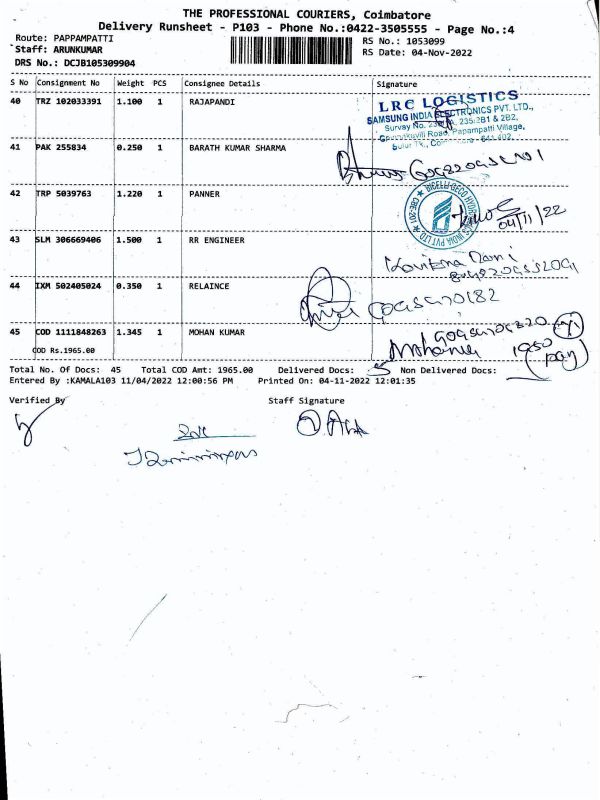 THE PROFESSIONAL COURIERS, Coimbatore
Delivery Runsheet - P103 - Phone No.:0422-3505555 - Page No.:4
Route: PAPPAMPATTI
Staff: ARUNKUMAR
DRS No.: DCJB105309904
RS No.: 1053099
RS Date: 04-Nov-2022
S No Consignment No Weight PCS Consignee Details Signature
40 TRZ 102033391 1.100 1 RAJAPANDI
LRC LOGISTICS
SAMSUNG INDIA ELECTRONICS PVT. LTD.,
Survey No. 235:2B1 & 2B2,
Road, Papampatti Village,
Sulur Tk.,
41 PAK 255834 0.250 1 BARATH KUMAR SHARMA
42 TRP 5039763 1.220 1 PANNER
04/11/22
43 SLM 306669406 1.500 1 RR ENGINEER
44 IXM 502405024 0.350 1 RELAINCE
45 COD 1111848263 1.345 1 MOHAN KUMAR
COD Rs.1965.00
1950
(pay)
Total No. Of Docs: 45 Total COD Amt: 1965.00 Delivered Docs: Non Delivered Docs:
Entered By :KAMALA103 11/04/2022 12:00:56 PM Printed On: 04-11-2022 12:01:35
Verified By Staff Signature